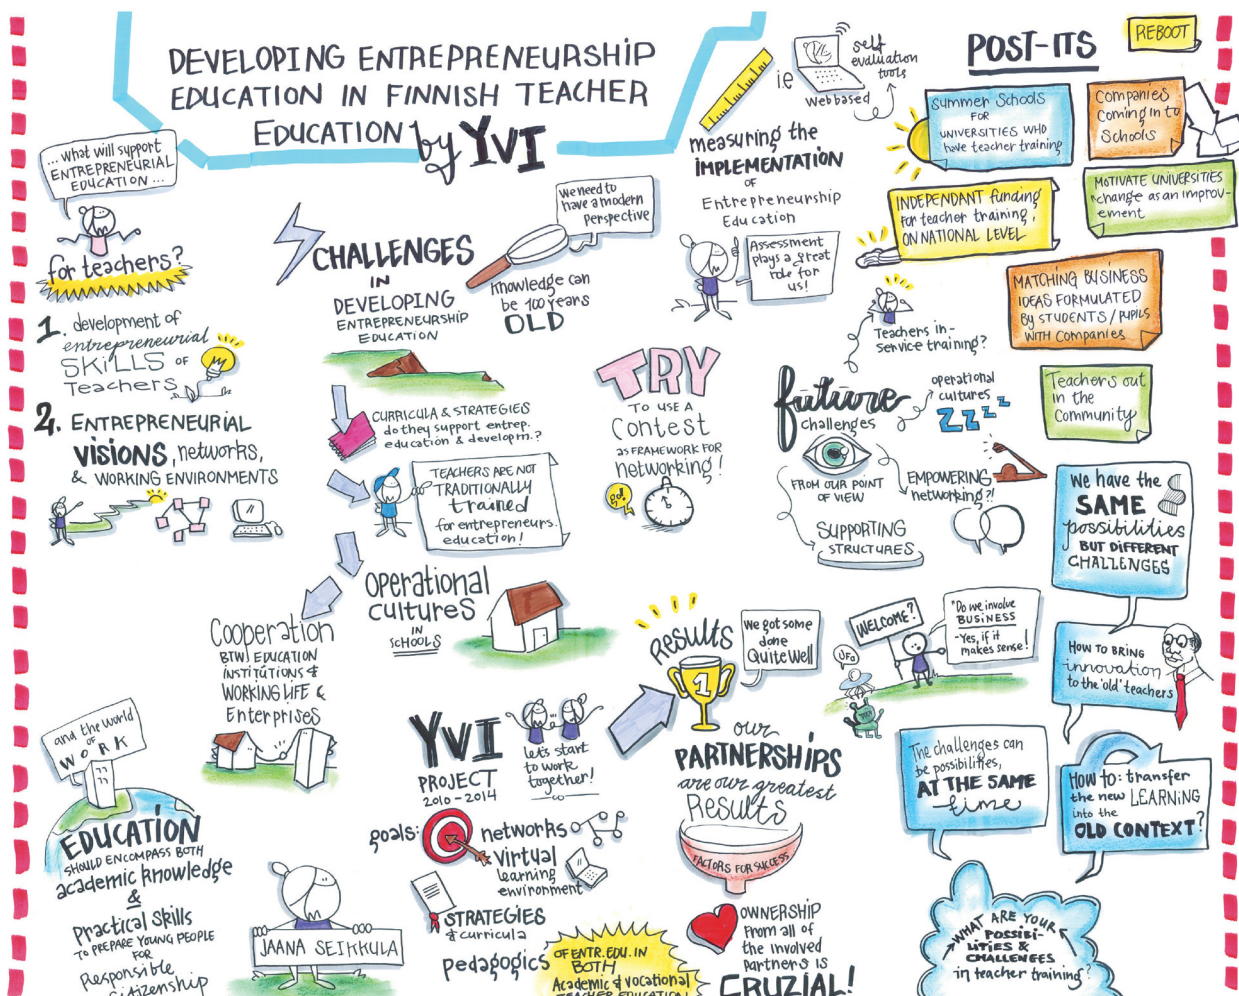 DEVELOPING ENTREPRENEURSHIP
EDUCATION IN FINNISH TEACHER
EDUCATION by YVI
... what will support
ENTREPRENEURIAL
EDUCATION ...
for teachers?
1. development of
entrepreneurial
SKILLS OF
Teachers
2. ENTREPRENEURIAL
VISIONS, networks,
& WORKING ENVIRONMENTS
CHALLENGES
IN
DEVELOPING
ENTREPRENEURSHIP
EDUCATION
We need to
have a modern
perspective
Knowledge can
be 100 years
OLD
CURRICULA & STRATEGIES
do they support entrep.
education & developm.?
TEACHERS ARE NOT
TRADITIONALLY
trained
for entrepreneurs.
education!
OPERATIONAL
CULTURES
IN
SCHOOLS
Cooperation
BTW. EDUCATION
INSTITUTIONS &
WORKING LIFE &
Enterprises
and the world
OF
WORK
EDUCATION
SHOULD ENCOMPASS BOTH
academic knowledge
&
Practical Skills
TO PREPARE YOUNG PEOPLE
FOR
Responsible
Citizenship
JAANA SEIKKULA
i.e
webbased
self
evaluation
tools
measuring the
IMPLEMENTATION
OF
Entrepreneurship
Education
Assessment
plays a great
role for
us!
TRY
TO USE A
Contest
AS FRAMEWORK FOR
networking!
go!
YVI
PROJECT
2010-2014
let's start
to work
together!
goals:
networks
Virtual
learning
environment
STRATEGIES
& curricula
pedagogics
OF ENTR. EDU. IN
BOTH
Academic & vocational
TEACHER EDUCATION
Results
1
We got some
done
Quite Well
our
PARTNERSHIPS
are our greatest
Results
FACTORS FOR SUCCESS
OWNERSHIP
From all of
the involved
Partners is
CRUZIAL!
Teachers in-
service training?
future
challenges
operational
cultures
ZZZZ
FROM OUR POINT
OF VIEW
EMPOWERING
networking?!
SUPPORTING
STRUCTURES
WELCOME?
"Do we involve
BUSINESS
-Yes, if it
makes sense!
UFO
POST-ITS
REBOOT
Summer Schools
FOR
UNIVERSITIES WHO
have teacher training
Companies
Coming in to
Schools
INDEPENDANT funding
for teacher training,
ON NATIONAL LEVEL
MOTIVATE UNIVERSITIES
change as an improv-
ement
MATCHING BUSINESS
IDEAS FORMULATED
BY STUDENTS/PUPILS
WITH Companies
Teachers out
in the
Community
We have the
SAME
possibilities
BUT DIFFERENT
CHALLENGES
HOW TO BRING
innovation
to the 'old' teachers
The challenges can
be possibilities,
AT THE SAME
time
HOW TO: transfer
the new LEARNING
into the
OLD CONTEXT?
WHAT ARE YOUR
POSSIBI-
LITIES &
CHALLENGES
in teacher training?